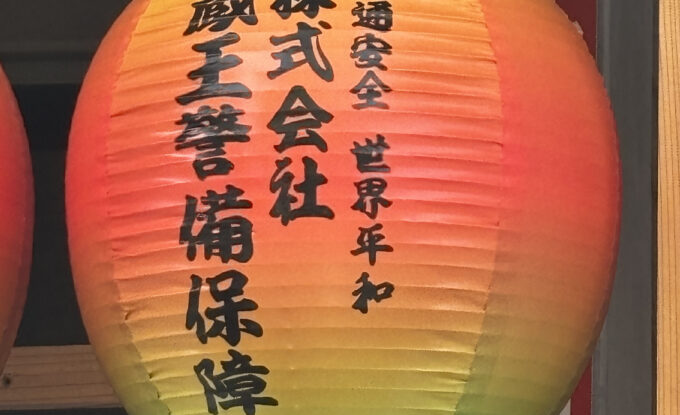 通安全 世界平和
株式会社
蔵王警備保障